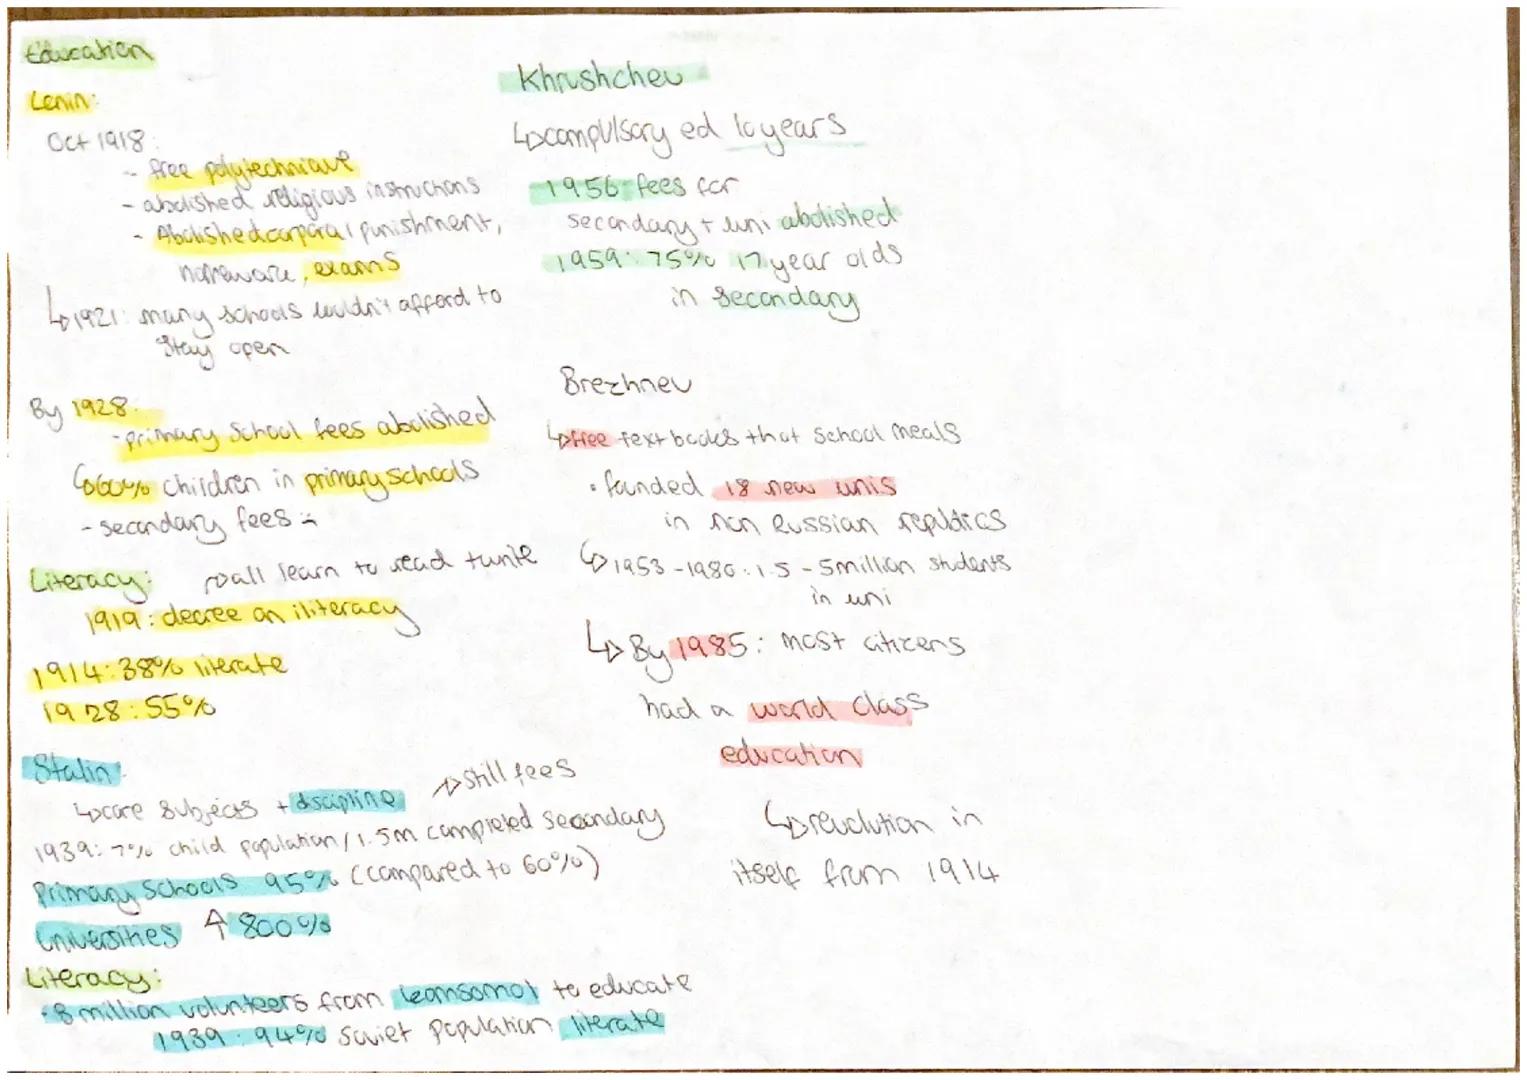 Education
Lenin:
Oct 1918:
- free polytechnique
- abolished religious instructions
- Abolished corporal punishment,
homework, exams
↳ 1921: many schools couldn't afford to
stay open
By 1928:
- primary school fees abolished
↳ 60% children in primary schools
- secondary fees
Literacy: → all learn to read + write
1919: decree on illiteracy
1914: 38% literate
1928: 55%
Stalin:
↳ core subjects + discipline → still fees
1939: 7% child population / 1.5m completed secondary
Primary Schools 95% (compared to 60%)
Universities ↑ 800%
Literacy:
- 3 million volunteers from Komsomol to educate
1939: 94% Soviet population literate
Khrushchev
↳ compulsory ed 10 years
1956: fees for
secondary + uni abolished
1959: 75% 17 year olds
in secondary
Brezhnev
↳ free textbooks that school meals
• founded 18 new unis
in non Russian republics
↳ 1953-1980: 1.5 - 5million students
in uni
↳ By 1985: most citizens
had a world class
education
↳ revolution in
itself from 1914